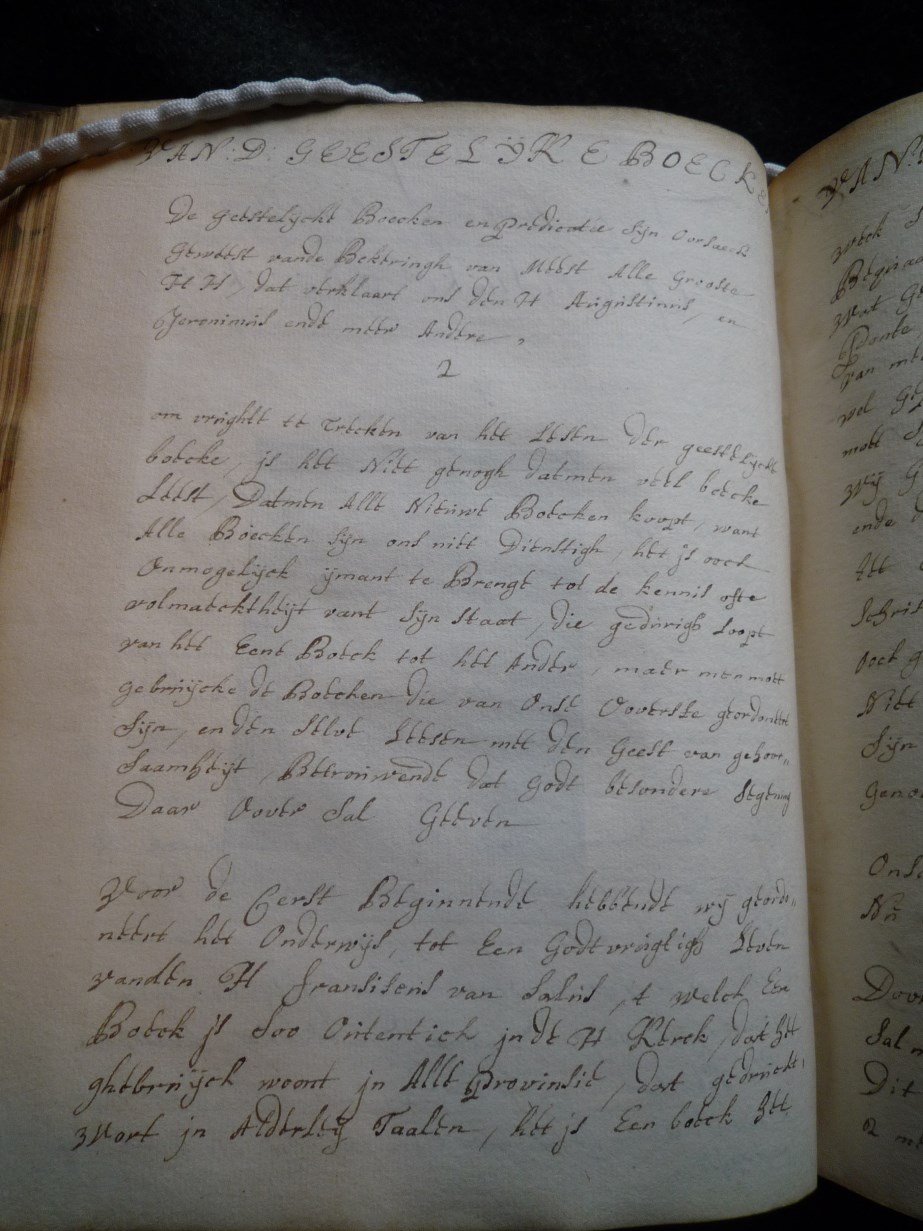 VAN: D: GEESTELŸKE BOECKE
De geestelyckt Boecken en Predicatie Sijn Oorsaeck
Geweest vande Bekeringh van Meest Alle Grooste
H H, dat verklaart ons den H Augustinus, en
Jeronimus ende meer Andere,
2
om vrught te Trecken van het Lesen der geestelyckt
boecke, is het Niet genogh datmen veel boecke
Leest, Datmen Alle Nieuwe Boecken koopt, want
Alle Boecken Sijn ons niet Dienstigh, het js oock
Onmogelyck ijmant te Brenge tot de kennis ofte
volmaeckthijt vant Sijn Staat, die gedurigh Loopt
van het Eene Boeck tot het Ander, maer men mott
gebruijcke de Boecken die van Onse Ooverste geordoneert
Sijn, en den Selve Leesen met den Geest van gehoor„
Saamheijt, Betrouwende dat Godt besondere Segening
Daar Oover Sal Geeven
Voor de Eerst Beginnende hebbende wij geordi„
neert het Onderwijs, tot Een Godtvrugtigh Leven
vanden H fransisens van Salus, t welck Een
Boeck js Soo Oitentick jnde H Kerck, dat het
ghebruijck woont jn Alle Provinsie, dat gedruckt
Wort jn Alderleij Taalen, het js Een boeck het
VAN
Week
Begin
Wat Ge
Ponte
van me
wel Ge
mott
Wij G
ende
Schrif
Oock g
Niet
Sijn
Geno
Onse
Nu
Door
Sal
Dit
2 me